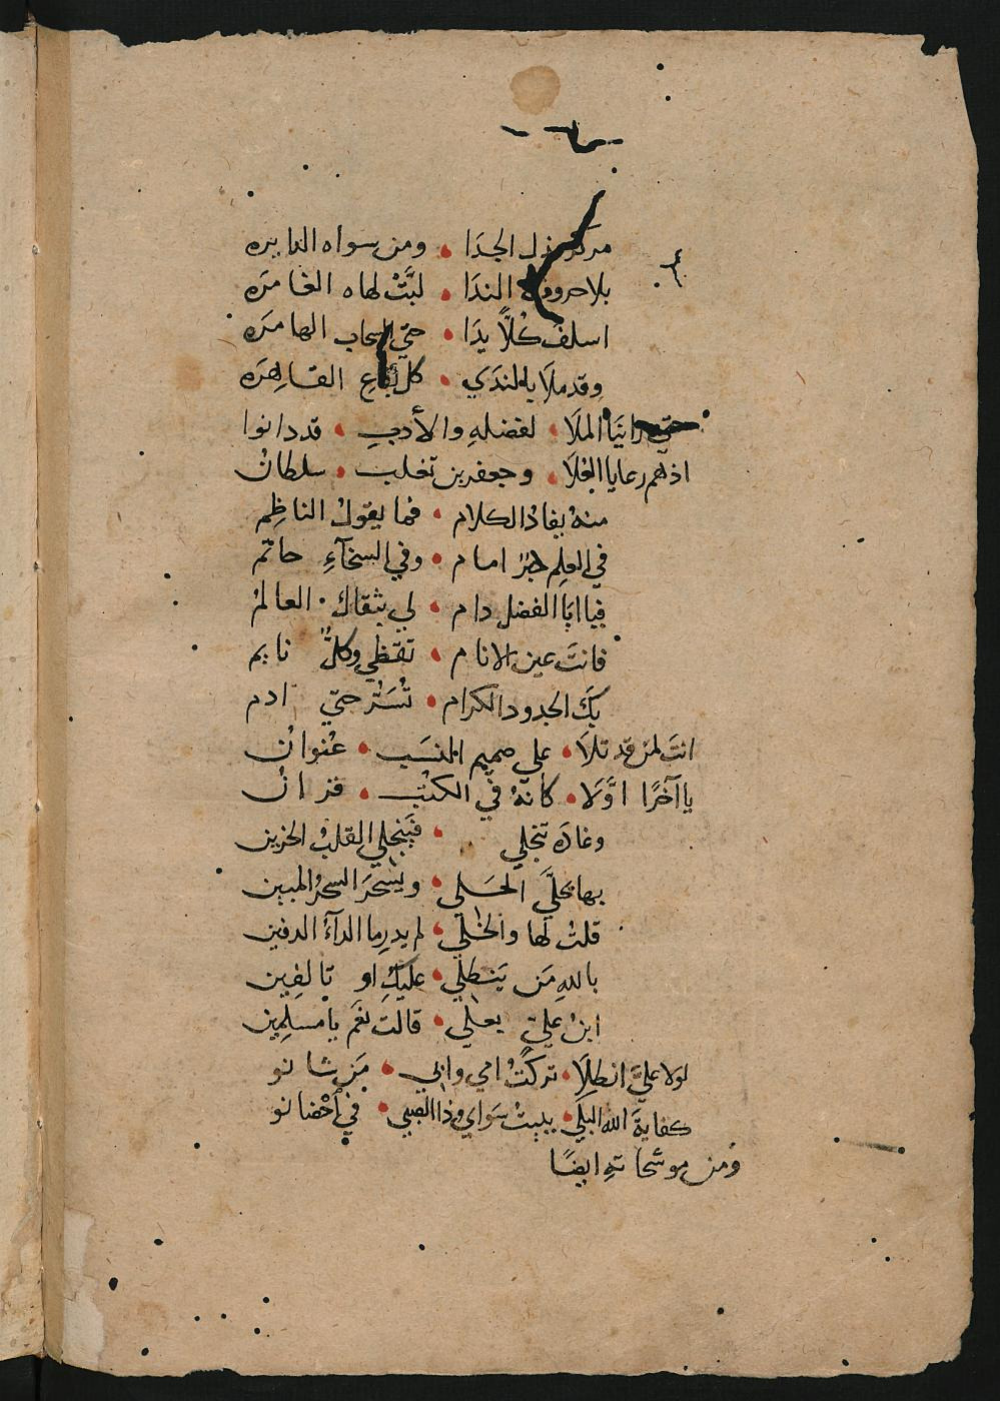 مركز بذل الجدَا • ومن سواه الدايره
بلا حروف الندَا • لبَّتْ لهاه الغامرَه
اسلف كُلًّا يدَا • حتي السحاب الهامرَه
وقد ملَا بالندَي • كل بقاعِ القاهِرَه
حتي راينَا الملَا • لفضلهِ والأدبِ • قد دانوا
اذ هم رعايا العُلَا • وجعفر بن تغلب • سلطانْ
منهُ يفادُ الكلام • فما يقولُ الناظِم
في العلِم حَبْرٌ امام • وفي السخآءِ حاتم
فيا ابَا الفضل دام • لي بثقاك • العالمْ
فانتَ عين الانام • تقظي وكلٌّ نايم
بكَ الجدود الكرام • تُسَرُّ حتي ادم
انتَ لمن قد تلَا • علي صميم المنسَب • عُنوانْ
يا آخرًا اوَّلَا • كانهُ في الكتْبِ • قرانْ
وغادَه تنجلي • فينجلي القلبُ الحزين
بها يُحلَّي الحَلي • ويُسحرَ السحرُ المبين
قلتُ لها والخَلي • لم يدرِ ما الدآءُ الدفين
باللهِ مَن يَنطلي • عليكِ او تالفِين
ابنُ عليّ يعلي • قالت نعَم يا مسلِمين
لولا عليّ انطلَا • تركتُ امي وابي • مَن شانو
كفايةَ الله البلَي • يبيتْ سَواي وذا الصبي • في أحْضانو
ومن موشحاتهِ ايضًا